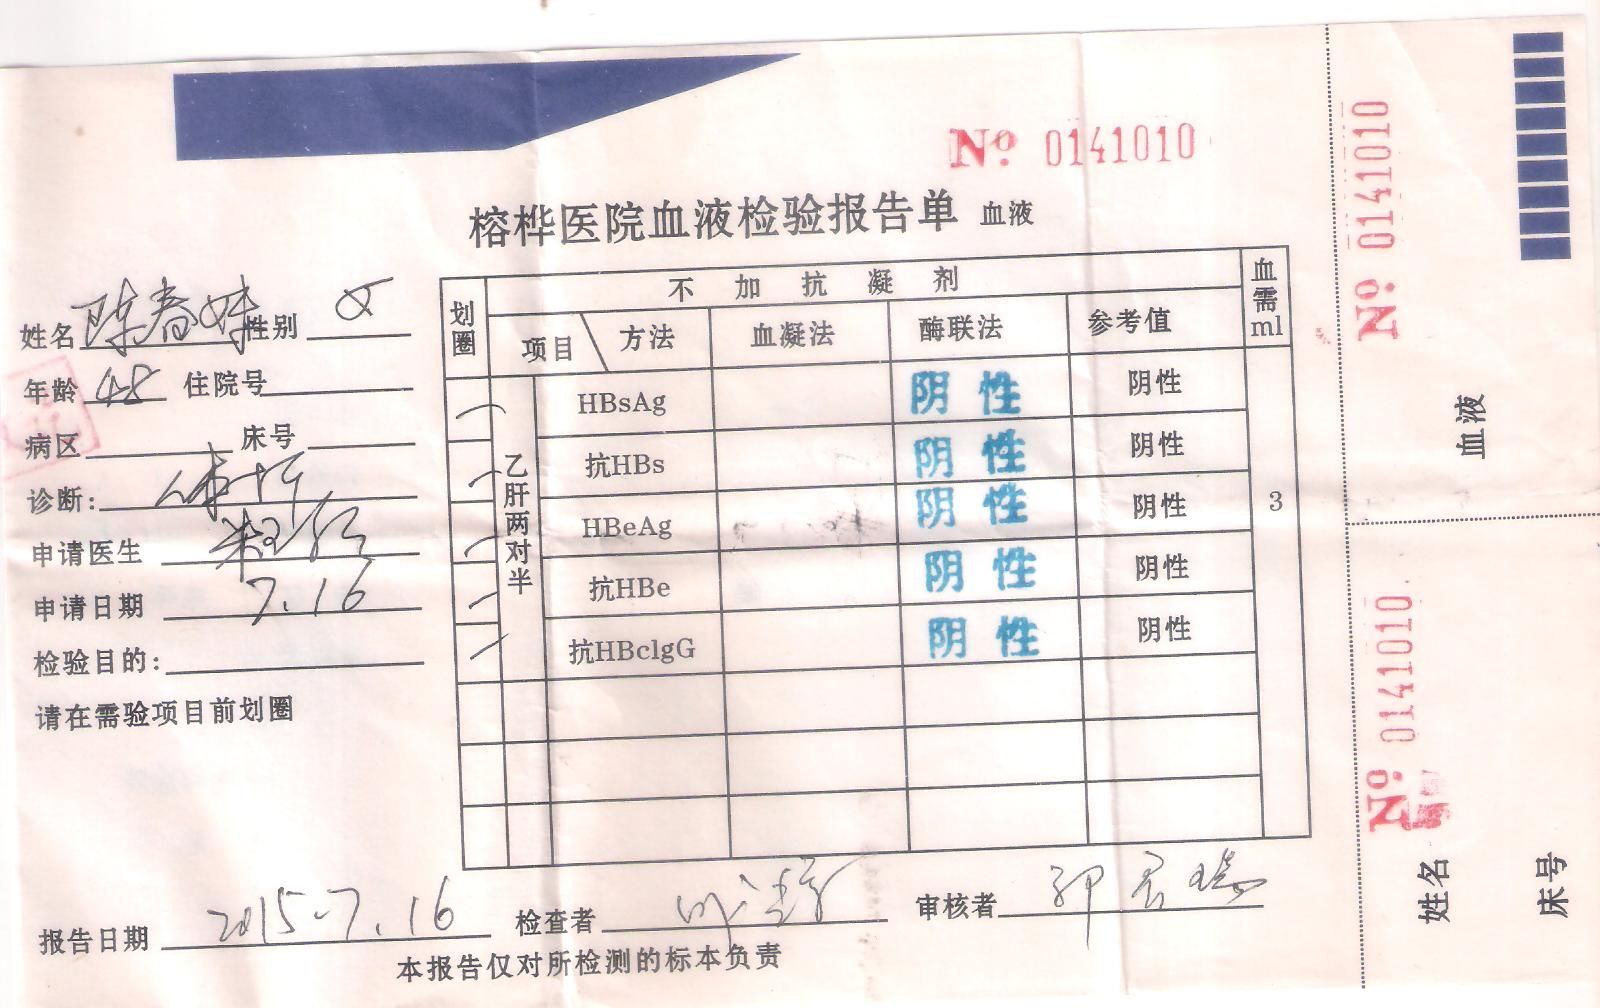 No 0141010
榕桦医院血液检验报告单 血液
姓名 陈春妹 性别 女
年龄 48 住院号
病区 床号
诊断: 体检
申请医生
申请日期 7.16
检验目的:
请在需验项目前划圈
划圈 不加抗凝剂 血需ml
项目 方法 血凝法 酶联法 参考值
乙肝两对半
HBsAg 阴性 阴性
抗HBs 阴性 阴性
HBeAg 阴性 阴性
抗HBe 阴性 阴性
抗HBclgG 阴性 阴性
3
报告日期 2015-7.16 检查者 审核者
本报告仅对所检测的标本负责
No 0141010
血液
No 0141010
姓名
床号